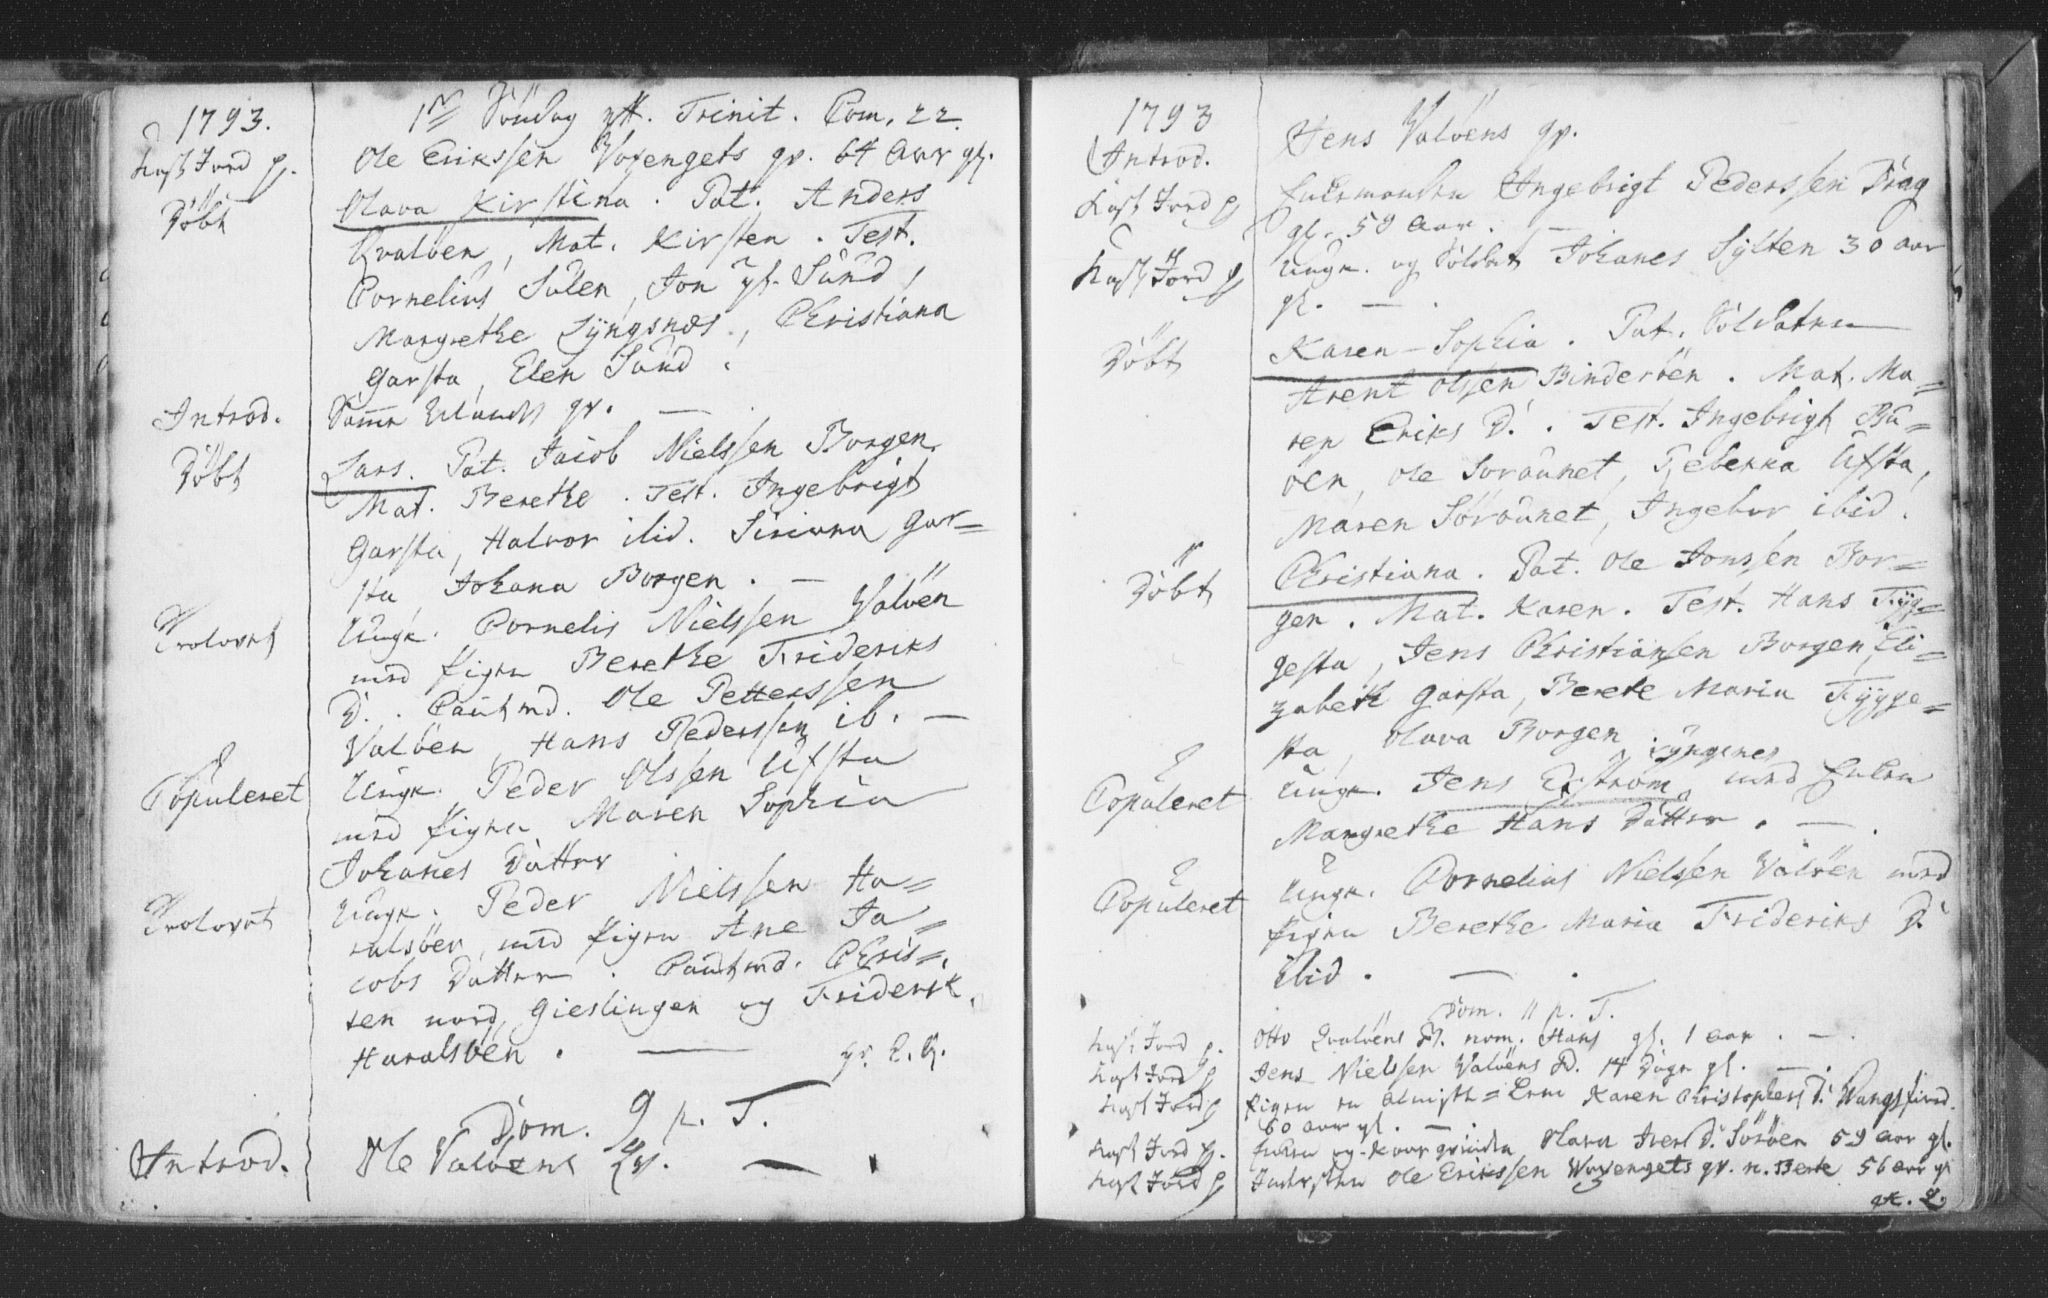 1793.
1ste Søndag eft. Trinit. Com. 22
Kast Jord p.
Ole Erikssen Woxengets qv. 64 Aar gl.
Døbt
Olava Kirstina. Pat. Anders
Qvaløen, Mat. Kirsten. Test.
Cornelius Sülen, Jon yst. Sünd,
Margrethe Lÿngsnæs, Christiana
Garsta, Elen Sünd.
Introd.
Samme qv. —
Døbt
Lars. Pat. Jacob Nielssen Borgen
Mat. Berethe. Test. Ingebrigt
Garsta, Halvor ibid. Siriana Gar=
sta, Johana Borgen. —
Trolovet
Ungk. Cornelis Nielssen Valøen
med Pigen Berethe Frideriks
D. Cautmd. Ole Petterssen
Valøen, Hans Pederssen ib. —
Copuleret
Ungk. Peder Olssen Üfsta
med Pigen Maren Sophia
Johanes Datter
Trolovet
Ungk. Peder Nielssen Ha=
ralsøen, med Pigen Ane Ja=
cobs Datter. Cautmd. Chris=
ten nord, Gieslingen og Friderik
Haralsøen. —
Dom. 9 p. T.
Introd.
Ole Valøens Qv. —
1793
Introd.
Jens Valøens qv.
Kast Jord p
Enkemanden Ingebrigt Pederssen Drag
gl. 59 Aar. —
Kast Jord p
Ungk. og Soldat Johanes Sÿlten 30 aar
gl. —
Døbt
Karen-Sophia. Pat. Soldaten
Arent Olssen Binderøen. Mat. Ma=
ren Eriks D. Test. Ingebrigt Bu=
øen, Ole Søraünet, Rebekka Üfsta,
Maren Søraünet, Ingebor ibid.
Døbt
Christiana. Pat. Ole Jonssen Bor=
gen. Mat. Karen. Test. Hans Tÿg=
gesta, Jens Christiansen Borgen, Eli=
zabeth Garsta, Berete Maria Tÿgge=
sta, Olava Borgen
Copuleret
Ungk. Jens Ekstrøm Lÿngsnes med Enken
Margrethe Hans Datter. —
Copuleret
Ungk. Cornelius Nielssen Valøen med
Pigen Berethe Maria Frideriks D.
ibid. —
Dom. 11 p. T.
Kast Jord p.
Otto Qvaløens B. nom. Hans gl. 1 aar. —
Kast Jord p
Jens Nielssen Valøens B. 14 Dage gl. —
Kast Jord p
Pigen en Almisse=Lem Karen Christophers D. Wangsfiord
60 aar gl. —
Kast Jord p.
Enken og Olava Ivers D. Sørøen 59 Aar gl.
Kast Jord p
Indersten Ole Erikssen Woxengets qv. n. Berte 56 aar gl